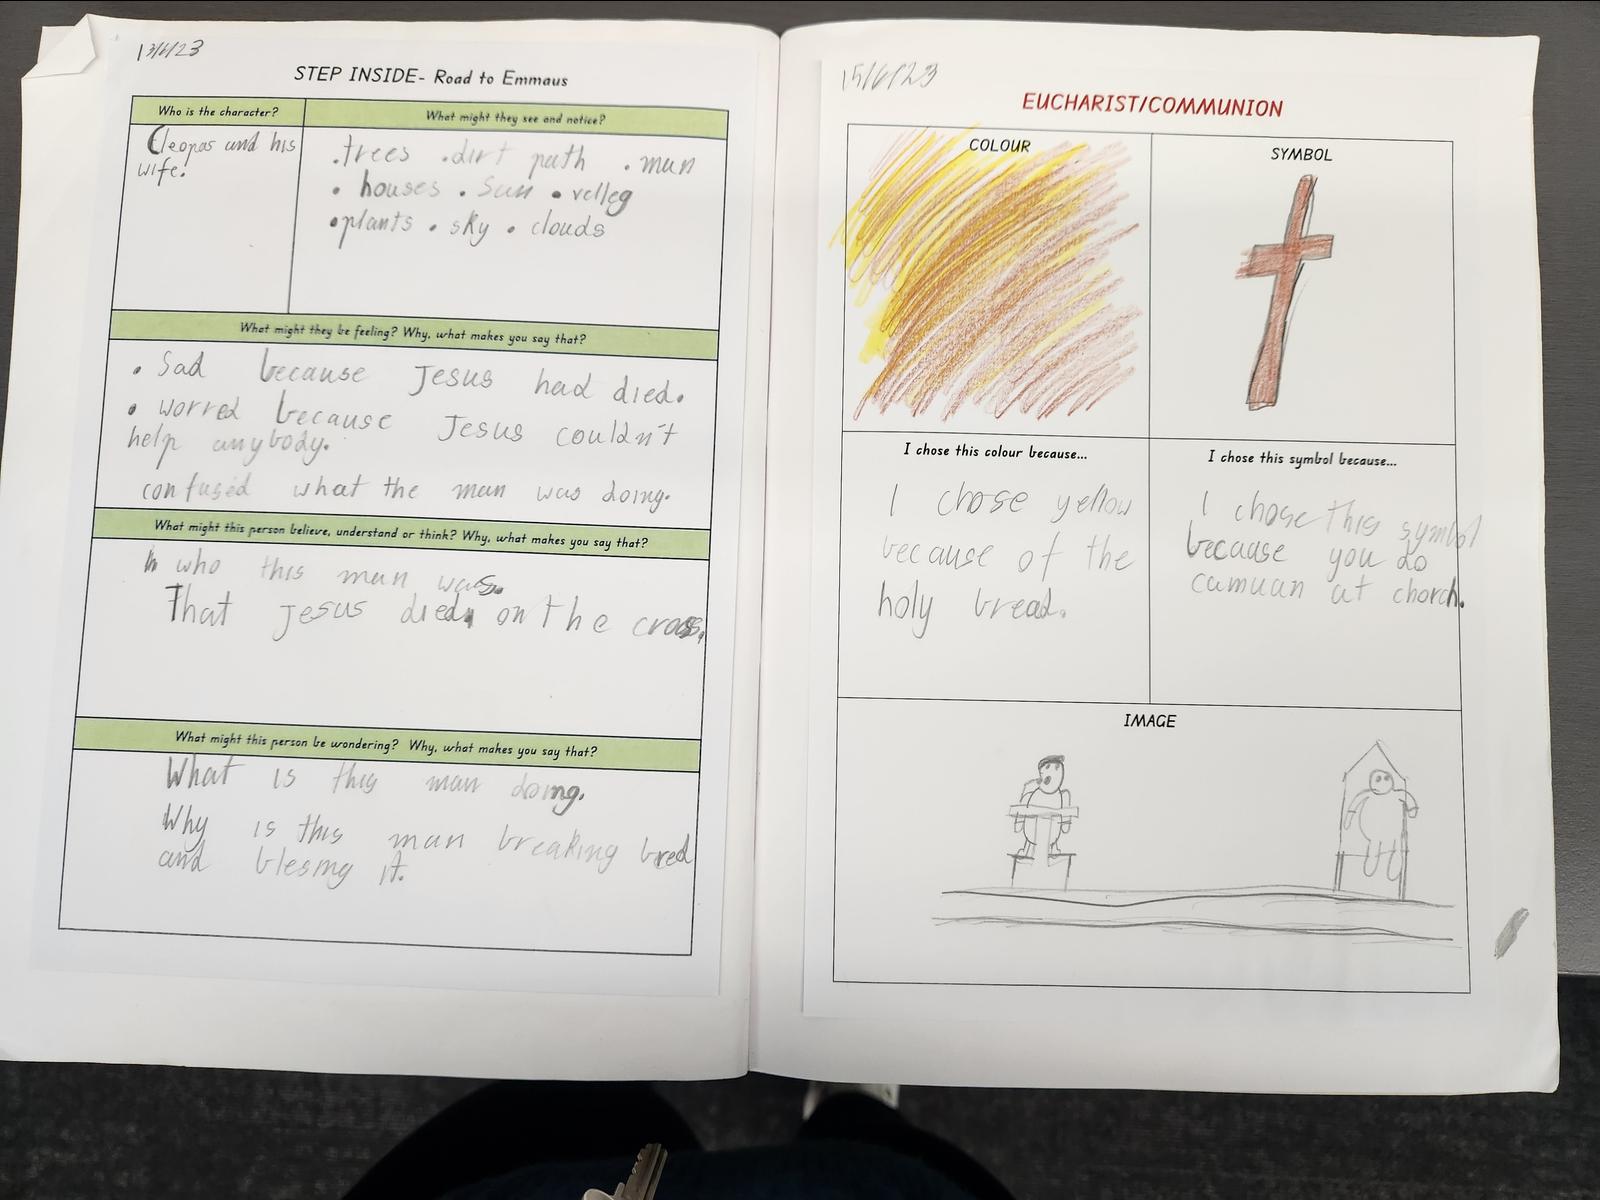 13/6/23
STEP INSIDE- Road to Emmaus
Who is the character?
Cleopas and his
wife.
What might they see and notice?
.trees .dirt path .man
• houses . Sun • velleg
•plants . sky . clouds
What might they be feeling? Why, what makes you say that?
. Sad because Jesus had died.
• worred because Jesus couldn't
help anybody.
confused what the man was doing.
What might this person believe, understand or think? Why, what makes you say that?
who this man was.
That Jesus died on the cross.
What might this person be wondering? Why, what makes you say that?
What is this man doing.
Why is this man breaking bred
and blesing it.
15/6/23
EUCHARIST/COMMUNION
COLOUR
SYMBOL
I chose this colour because...
I chose yellow
because of the
holy bread.
I chose this symbol because...
I chose this symbol
because you do
camuan at chorch.
IMAGE